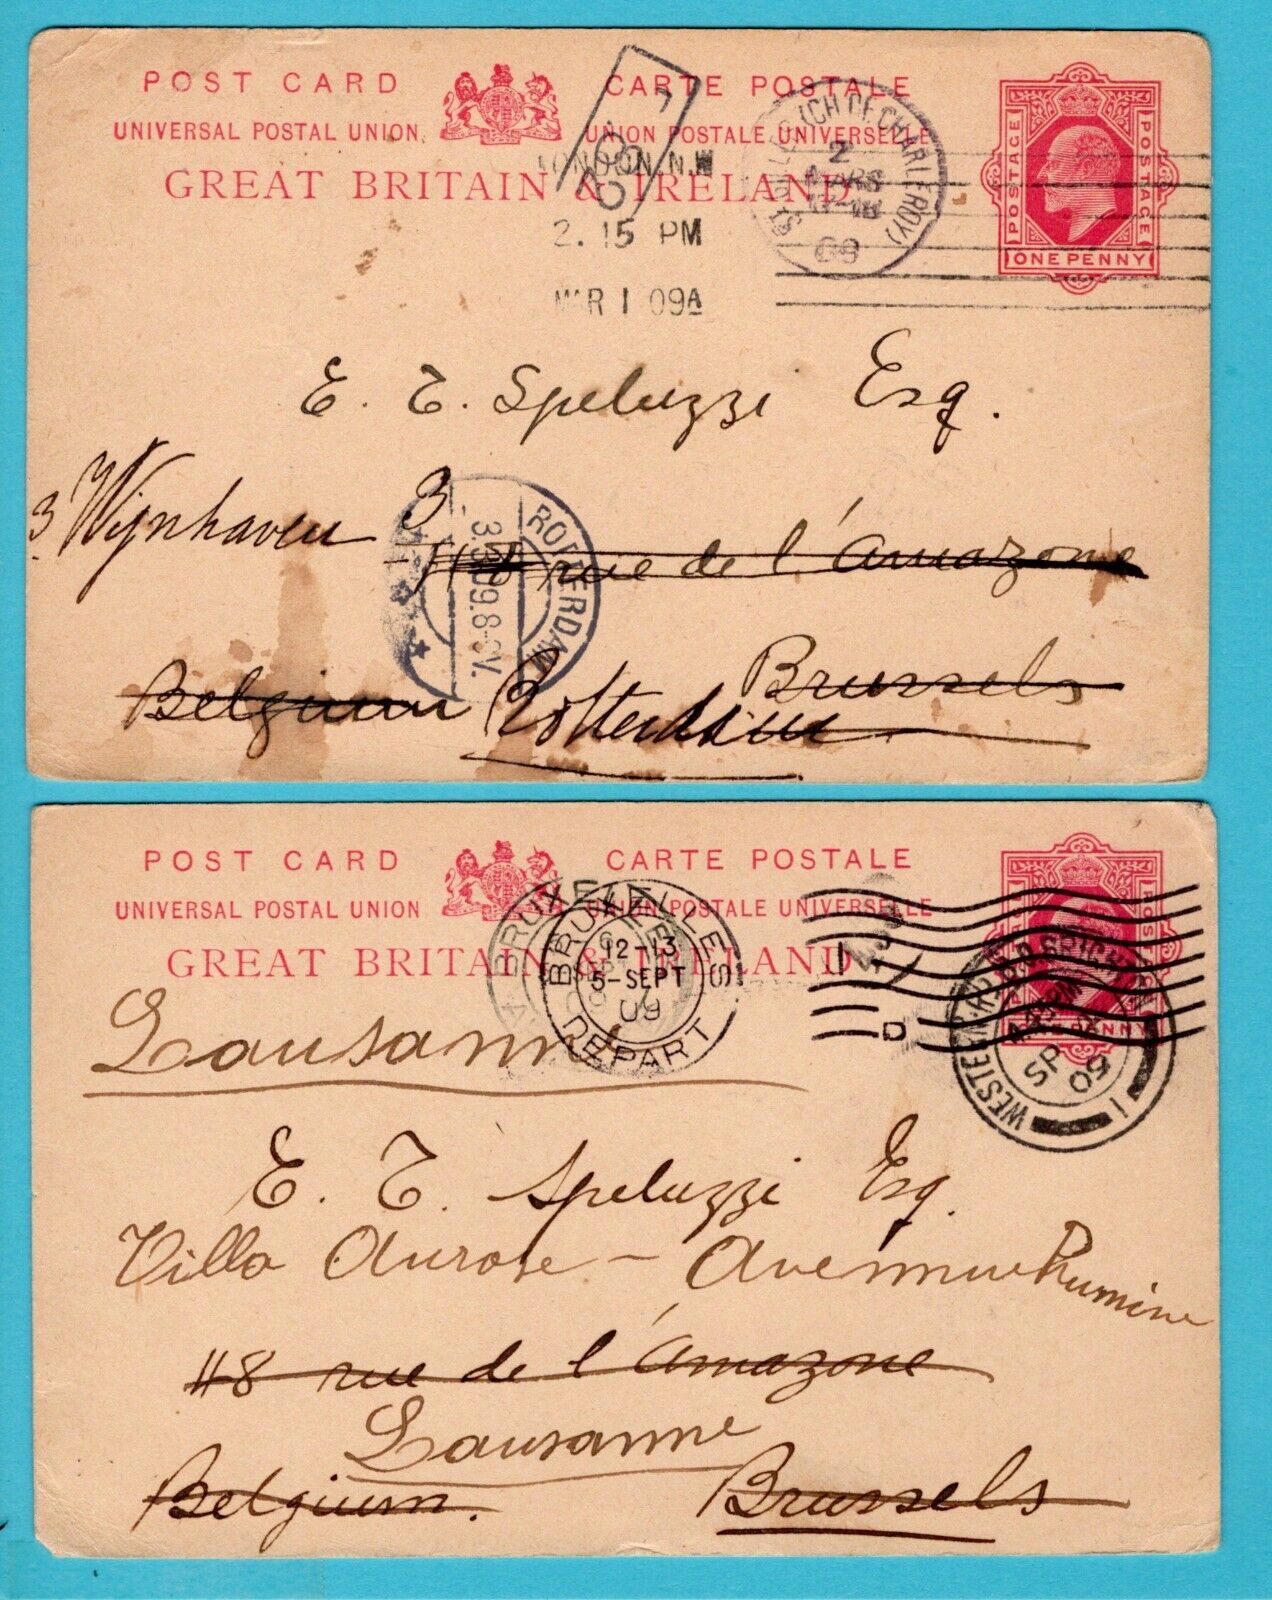 POST CARD CARTE POSTALE
UNIVERSAL POSTAL UNION. UNION POSTALE UNIVERSELLE
GREAT BRITAIN & IRELAND
POSTAGE POSTAGE
ONE PENNY
LONDON. N.W
2. 15 PM
MAR 1 09A
ST. GILLES (CH DE CHARLEROY)
2
MARS
17-18
09
E. T. Speluzzi Esq.
3 Wijnhaven 3
118 rue de l'Amazone
ROTTERDAM
3.3.09.8-9V.
Brussels
Belgium Rotterdam
POST CARD CARTE POSTALE
UNIVERSAL POSTAL UNION UNION POSTALE UNIVERSELLE
GREAT BRITAIN & IRELAND
ONE PENNY
BRUXELLES
12-13
5-SEPT
09
DEPART
WESTERN RD BRIGHTON
SP
09
1
Lausanne
E. T. Speluzzi Esq.
Villa Aurore - Avenue Rumine
118 rue de l'Amazone
Lausanne
Belgium. Brussels